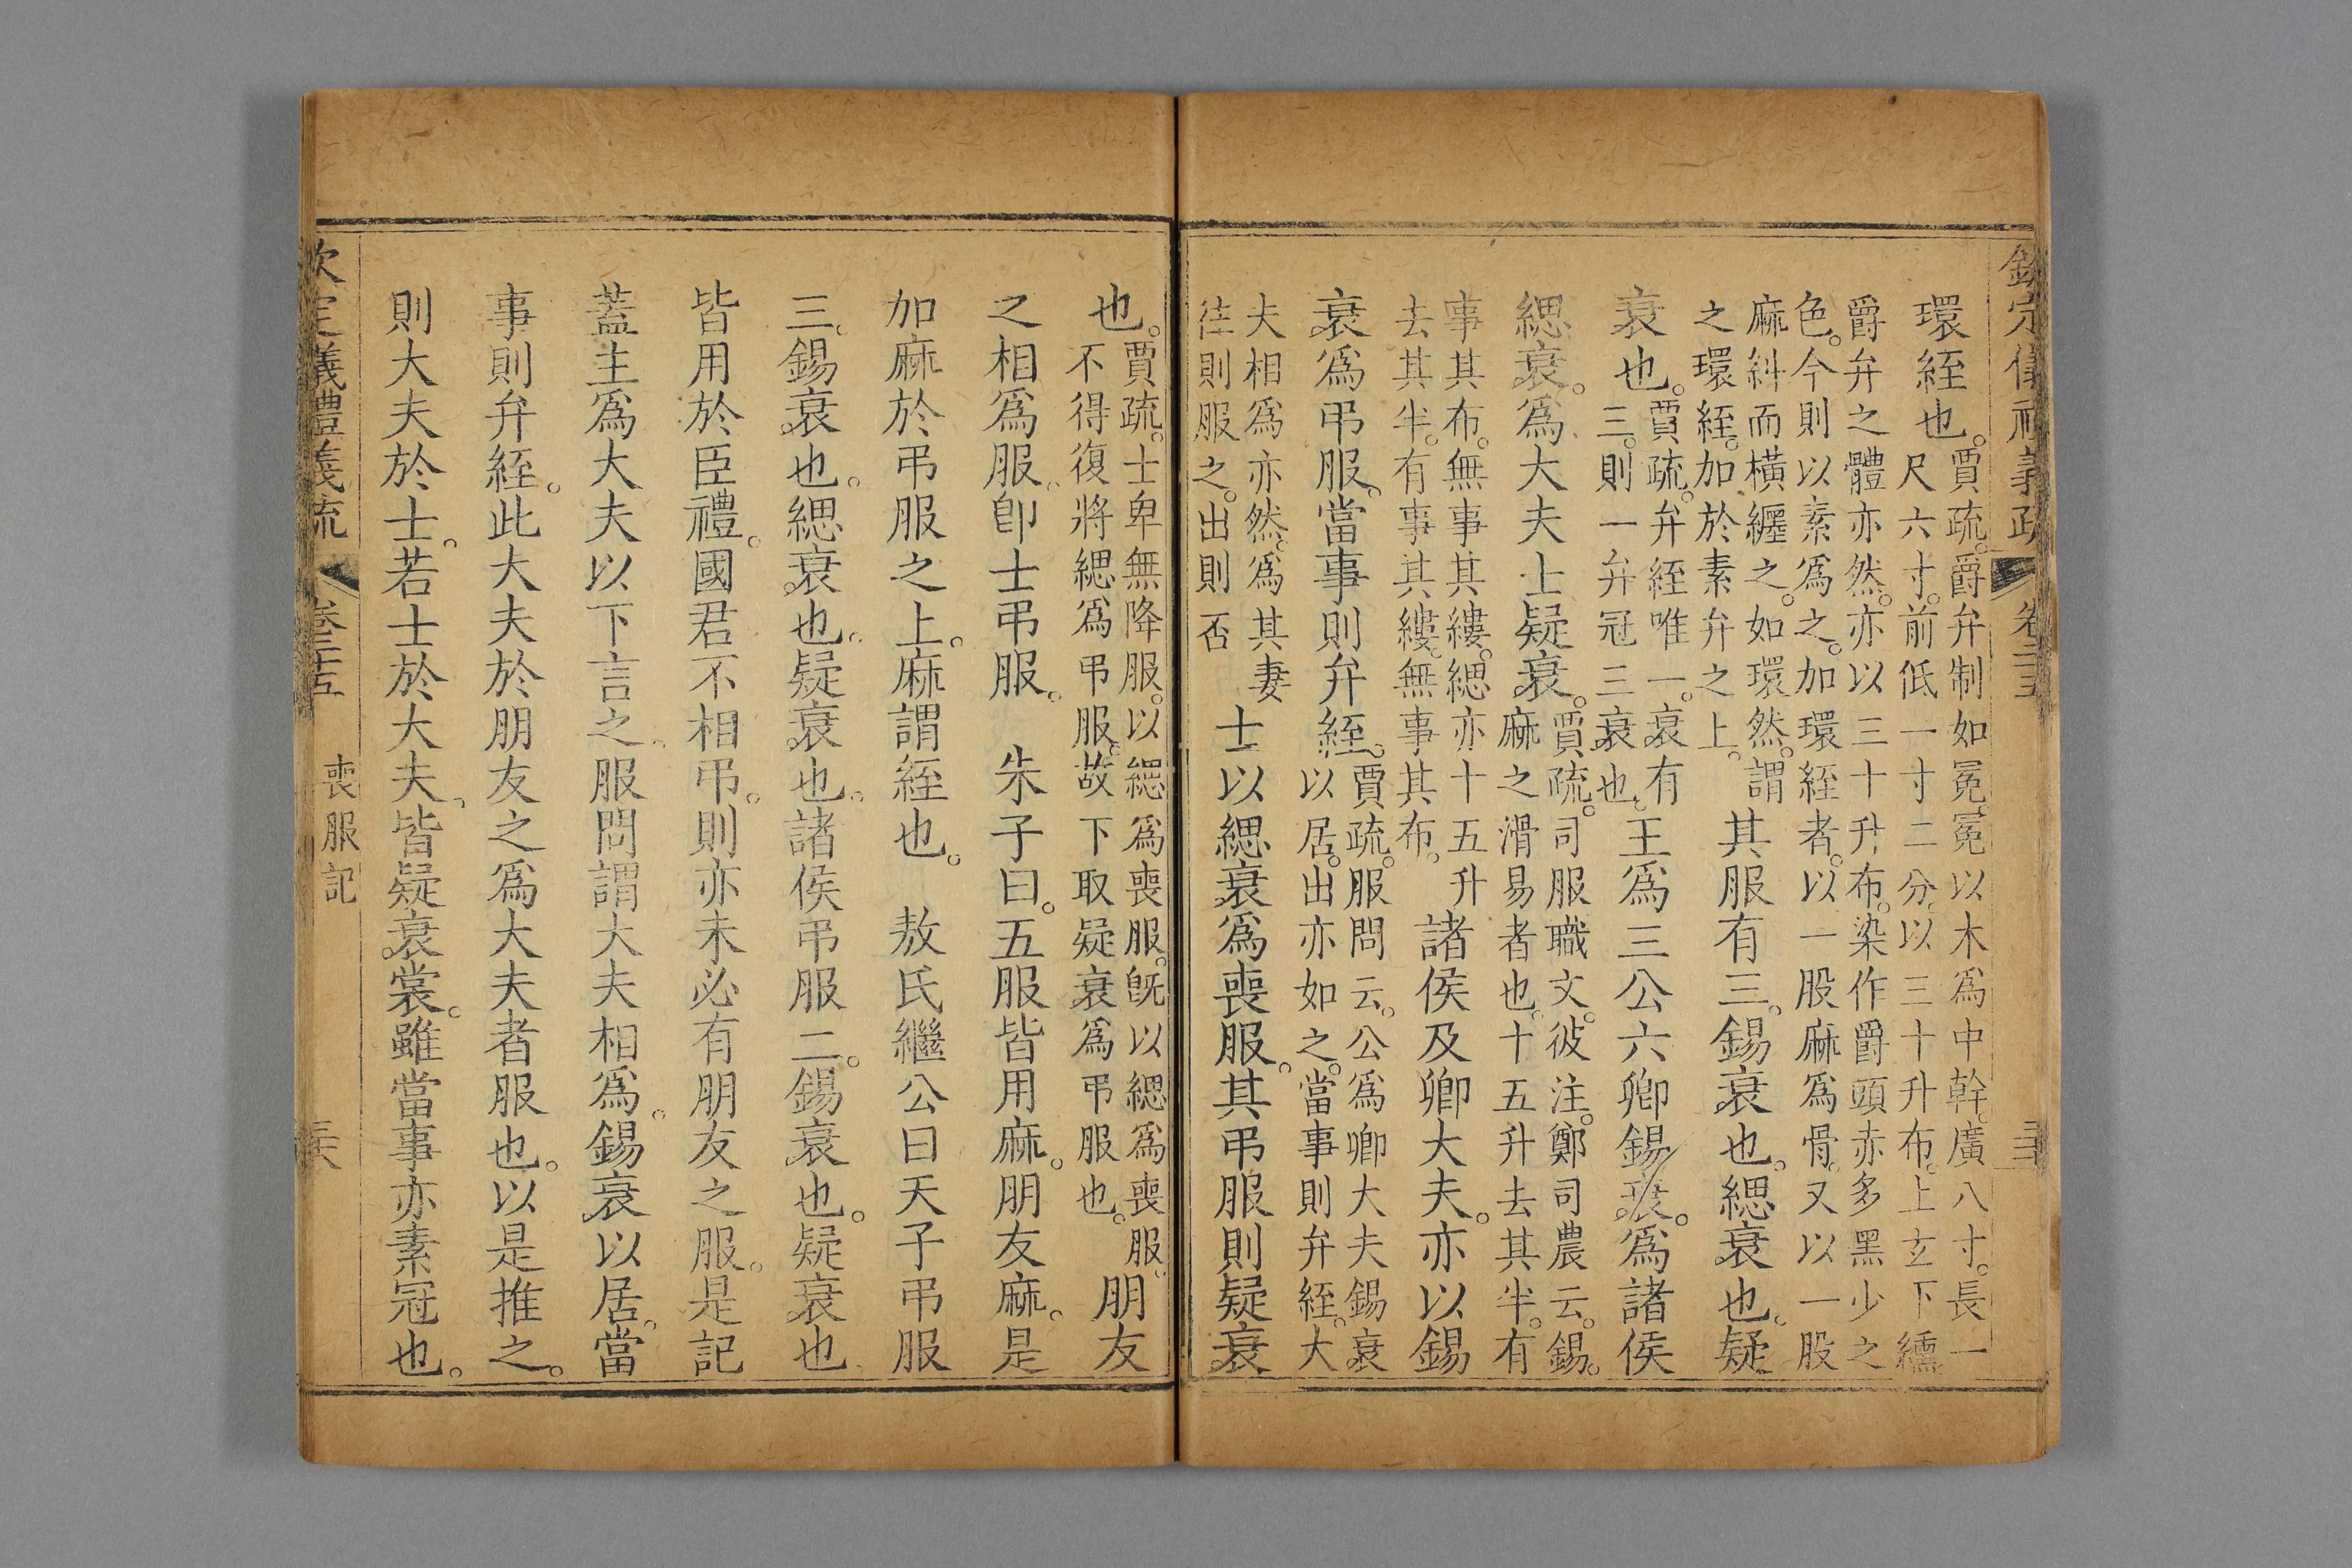 欽定儀禮義疏 卷二十五
環絰也。賈疏。爵弁制如冕。冕以木爲中幹。廣八寸。長一
尺六寸。前低一寸二分。以三十升布。上玄下纁。
爵弁之體亦然。亦以三十升布。染作爵頭赤多黑少之
色。今則以素爲之。加環絰者。以一股麻爲骨。又以一股
麻糾而橫纏之。如環然。謂
之環絰。加於素弁之上。其服有三。錫衰也。緦衰也。疑
衰也。賈疏。弁絰唯一。衰有
三。則一弁冠三衰也。王爲三公六卿錫衰。爲諸侯
緦衰。爲大夫士疑衰。賈疏。司服職文。彼注。鄭司農云。錫。
麻之滑易者也。十五升去其半。有
事其布。無事其縷。緦亦十五升
去其半。有事其縷。無事其布。諸侯及卿大夫。亦以錫
衰爲弔服。當事則弁絰。賈疏。服問云。公爲卿大夫錫衰
以居。出亦如之。當事則弁絰。大
夫相爲亦然。爲其妻
往則服之。出則否 士以緦衰爲喪服。其弔服則疑衰
也。賈疏。士卑無降服。以緦爲喪服。旣以緦爲喪服。
不得復將緦爲弔服。故下取疑衰爲弔服也。朋友
之相爲服。卽士弔服。 朱子曰。五服皆用麻。朋友麻。是
加麻於弔服之上。麻謂絰也。 敖氏繼公曰天子弔服
三。錫衰也。緦衰也。疑衰也。諸侯弔服二。錫衰也。疑衰也
皆用於臣禮。國君不相弔。則亦未必有朋友之服。是記
蓋主爲大夫以下言之。服問謂大夫相爲。錫衰以居。當
事則弁絰。此大夫於朋友之爲大夫者服也。以是推之。
則大夫於士。若士於大夫。皆疑衰裳。雖當事亦素冠也。
欽定儀禮義疏 卷二十五 喪服記